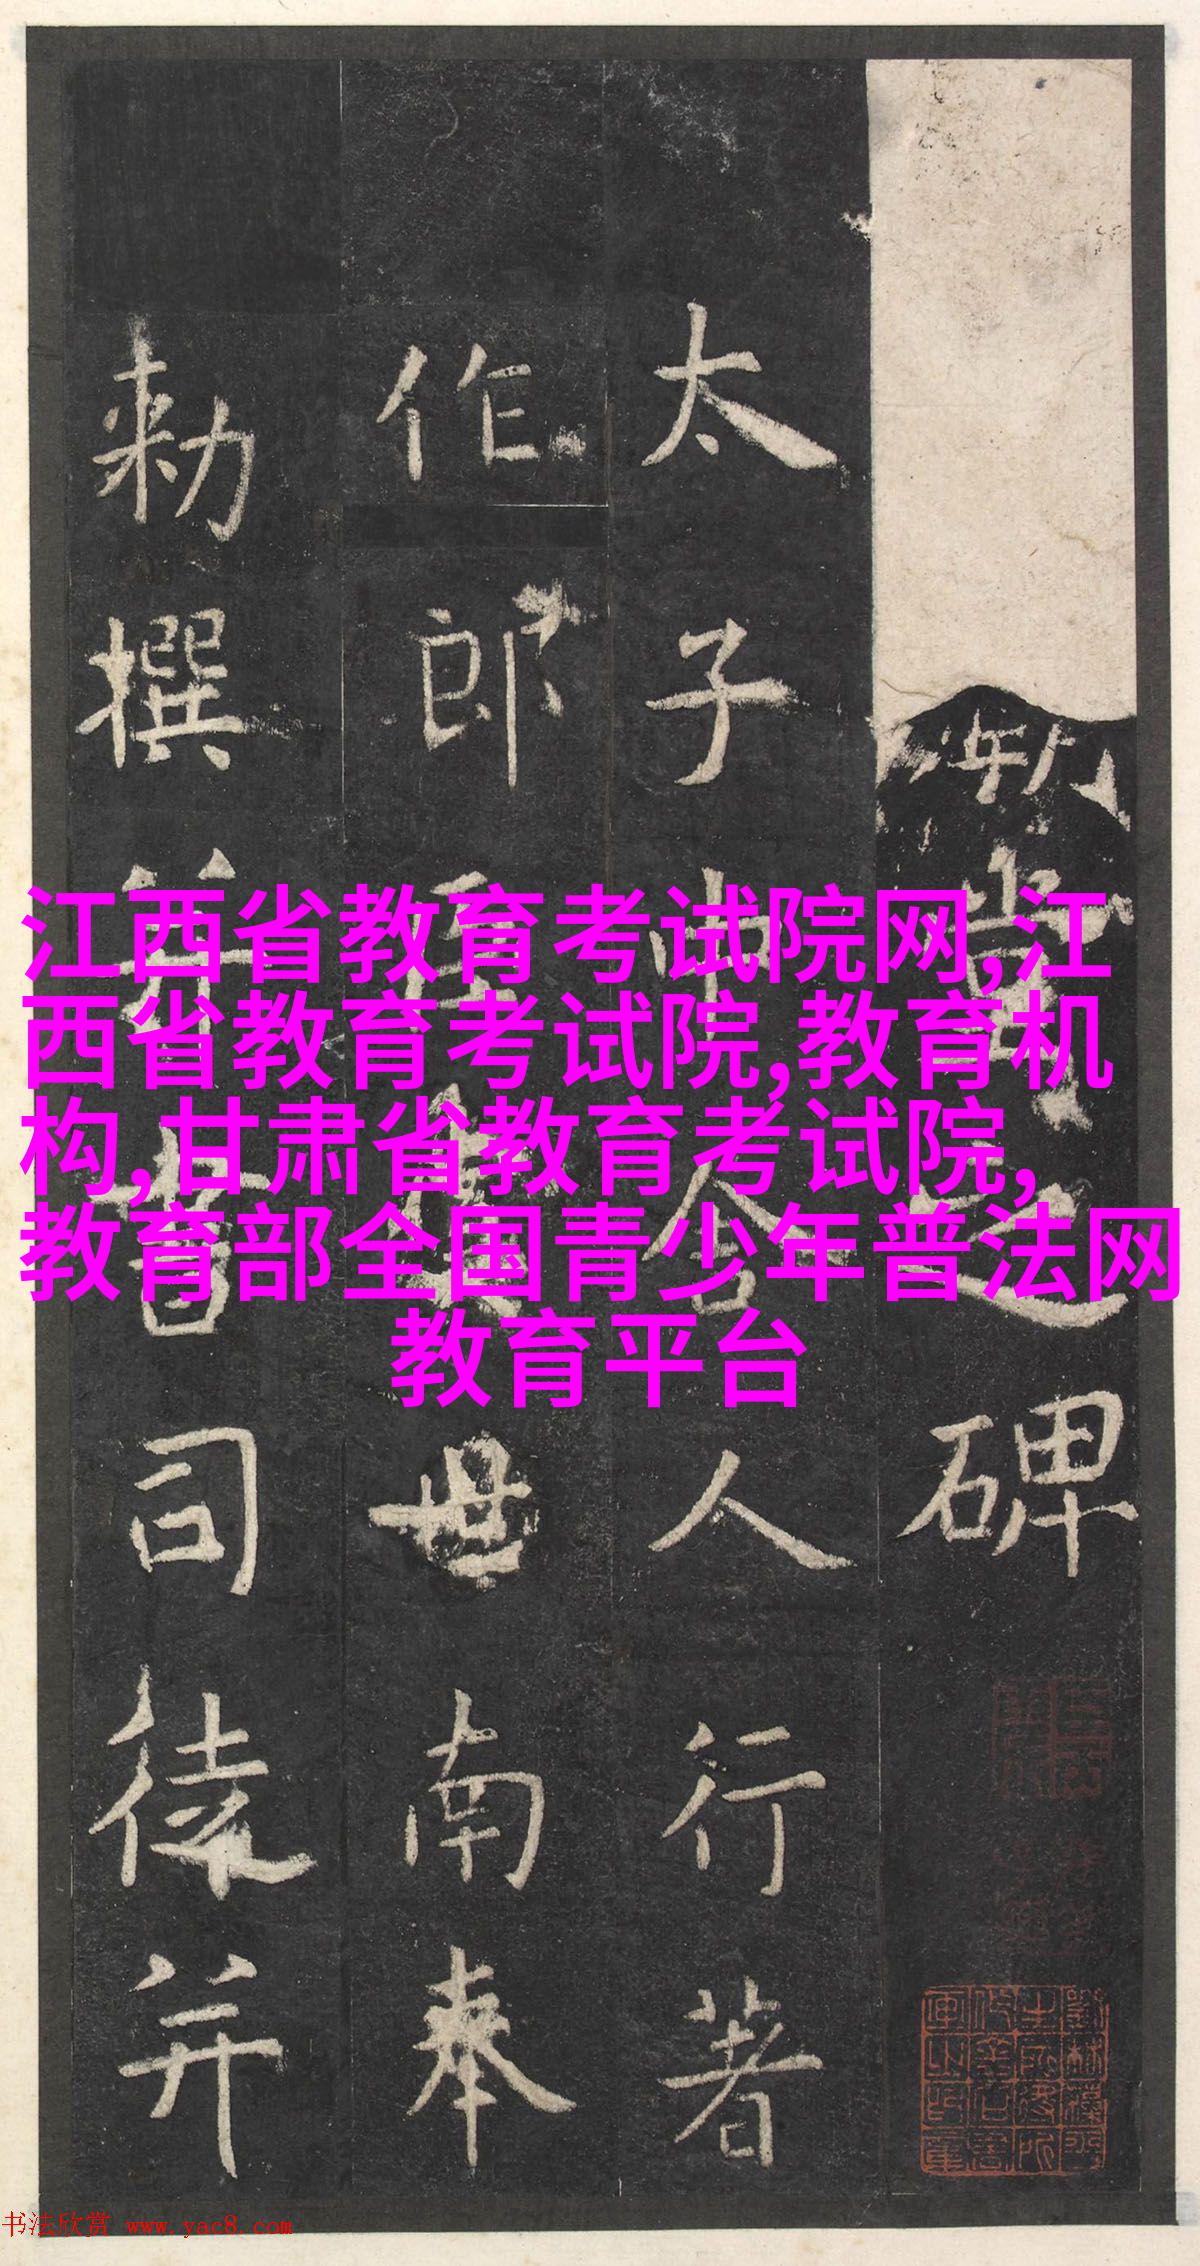 堂之碑
太子中舍人行著
作郎臣虞世南奉
勅撰并書司徒并
江西省教育考试院网,江
西省教育考试院,教育机
构,甘肃省教育考试院,
教育部全国青少年普法网
教育平台
书法欣赏 www.yac8.com